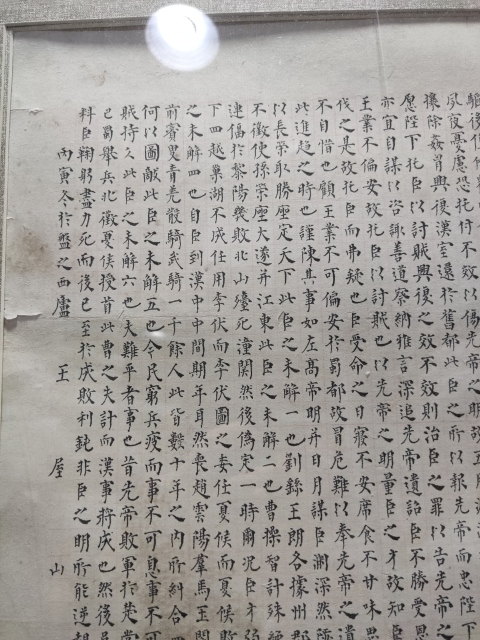 夙夜憂慮恐托付不效以傷先帝之明故五月
攘除姦興復漢室還於舊都此臣之所以報先帝而忠陛下
愿陛下托臣以討賊興復之效不效則治臣之罪以告先帝之
亦宜自謀以咨諏善道察納雅言深追先帝遺詔臣不勝受恩
王業不偏安故托臣以討賊也以先帝之明量臣之才故知臣
伐之是故托臣而弗疑也臣受命之日寢不安席食不甘味思
不自惜也顧王業不可偏安於蜀都故冒危難以奉先帝之遺
此進趋之時也謹陳其事如左高帝明并日月謀臣淵深然
以長策取勝座定天下此臣之未解一也劉繇王朗各據州郡
不徵使孫策座大遂并江東此臣之未解二也曹操智計殊絕
逮偪於黎陽幾敗北山殆死潼關然後偽定一時爾況臣才弱
下四越巢湖不成任用李伏而李伏圖之委任夏侯而夏侯敗
之未解四也自臣到漢中中間期年耳然喪趙雲陽羣馬玉閻
前賨叟青羌散騎武騎一千餘人此皆數十年之內所糾合四
何以圖敵此臣之未解五也今民窮兵疲而事不可息事不可
賊持久此臣之未解六也夫難平者事也昔先帝敗軍於楚當
巴蜀舉兵北徵夏侯授首此曹之失計而漢事將成也然後吳
料臣鞠躬盡力死而後已至於成敗利鈍非臣之明所能逆
丙寅冬於盤之西廬 王屋山